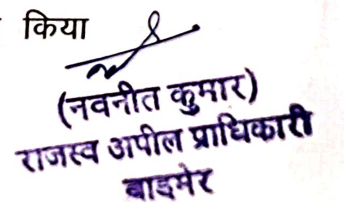 किया
(नवनीत कुमार)
राजस्व अपील प्राधिकारी
बाड़मेर